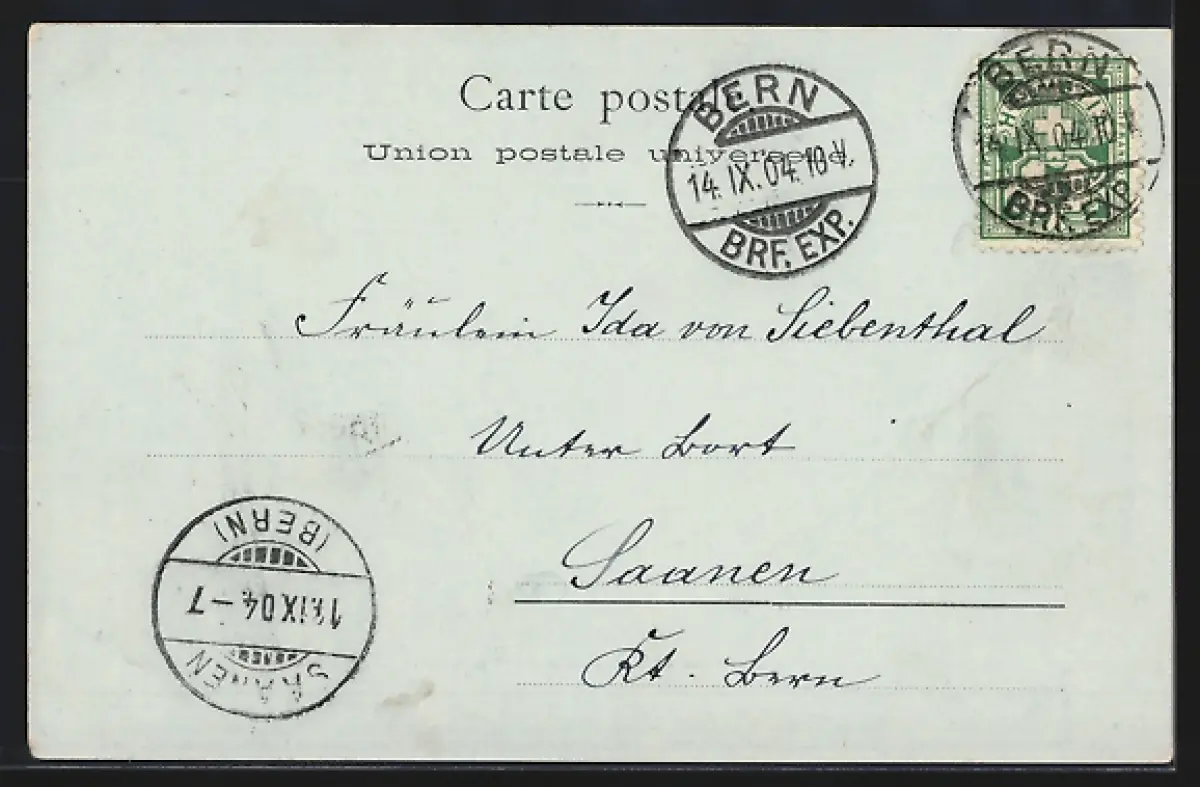 Carte postale
Union postale universelle.
BERN
14. IX. 04. 10 V.
BRF. EXP.
BERN
14. IX. 04. 10
BRF. EXP.
Fräulein Ida von Siebenthal
Unter Bort
Saanen
Kt. Bern
SAANEN
IX 04 - 7
(BERN)